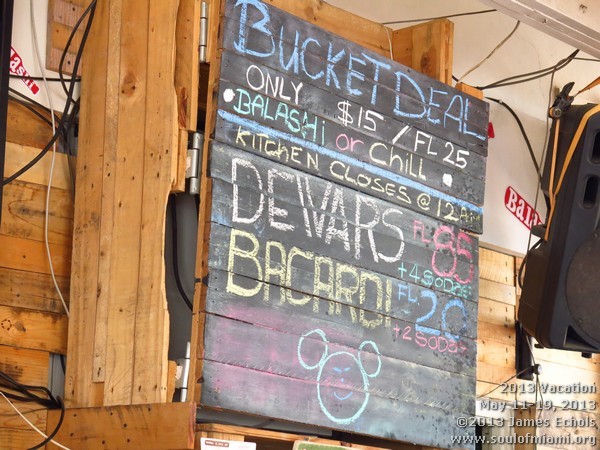 Bucket Deal
ONLY $15 / FL 25
BALASHI or CHILL
KITCHEN CLOSES @ 12 AM
DEWARS FL 85
+4 SODAS
BACARDI FL 20
+2 SODS
Balashi
2013 Vacation
May 11-19, 2013
©2013 James Echols
www.soulofmiami.org